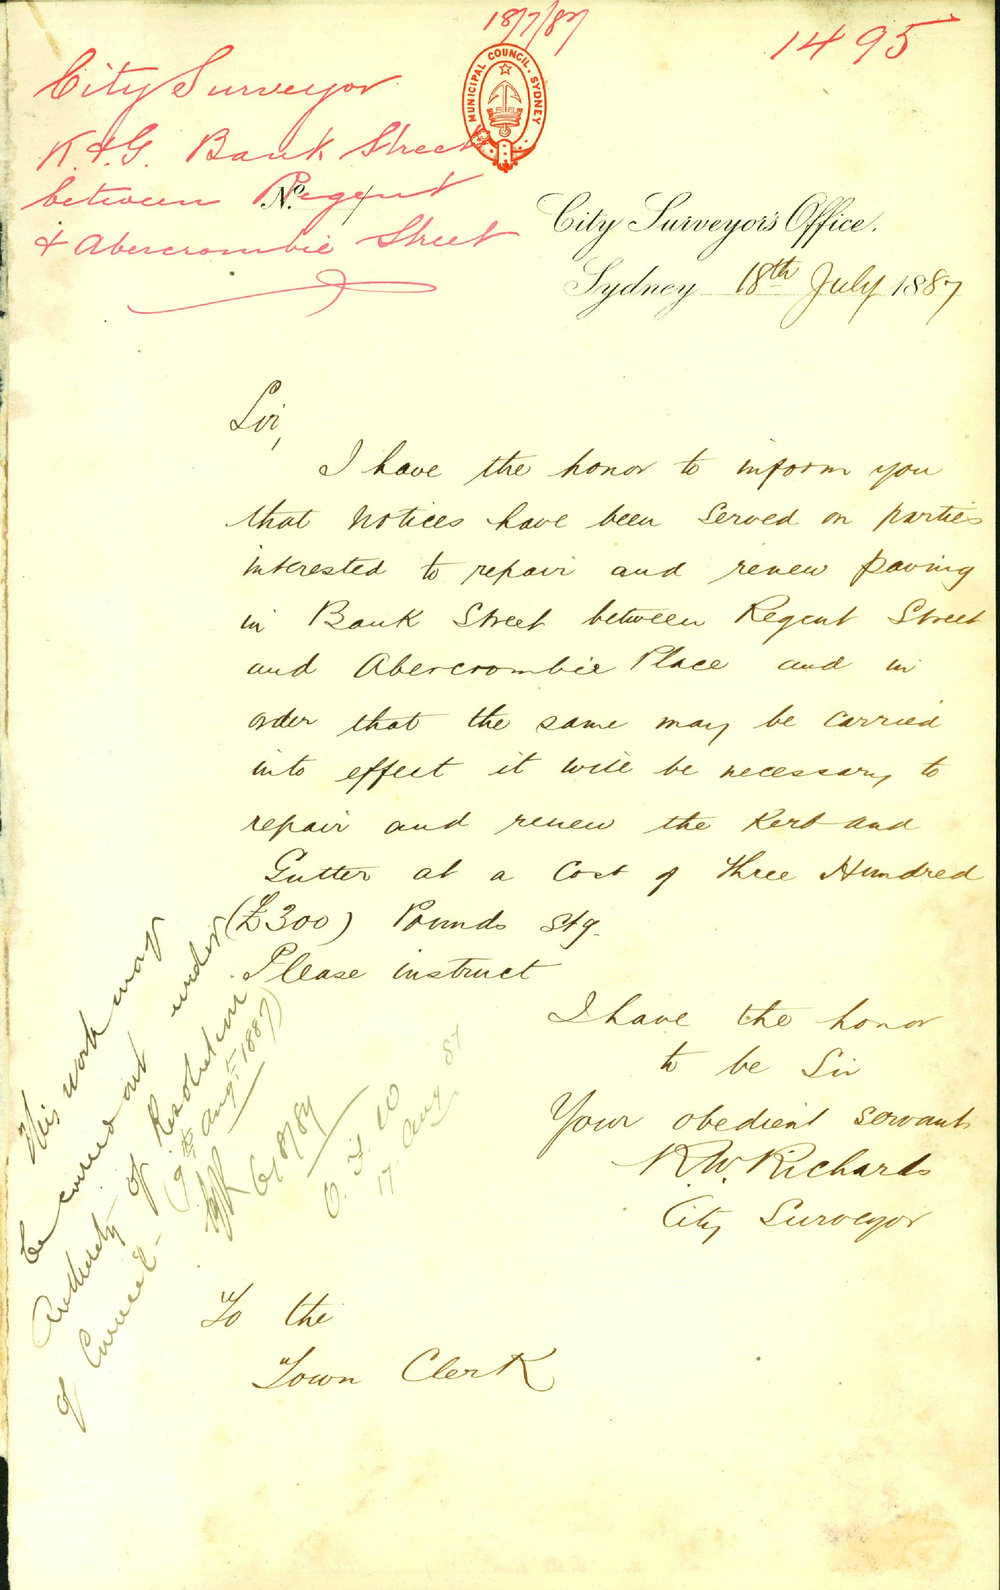 18/7/87
1495
City Surveyor
K. & G. Bank Street
between Regent
& Abercrombie Street
MUNICIPAL COUNCIL. SYDNEY
No.
City Surveyor's Office.
Sydney 18th July 1887
Sir,
I have the honor to inform you
that notices have been served on parties
interested to repair and renew paving
in Bank Street between Regent Street
and Abercrombie Place and in
order that the same may be carried
into effect it will be necessary to
repair and renew the Kerb and
Gutter at a Cost of Three Hundred
(£300) Pounds stg.
Please instruct
I have the honor
to be Sir
Your obedient servant
R.W. Richards
City Surveyor
This work may
be carried out under
Authority of Resolution
of Council - (9th Augt. 1887)
17 Aug 87
To the
Town Clerk